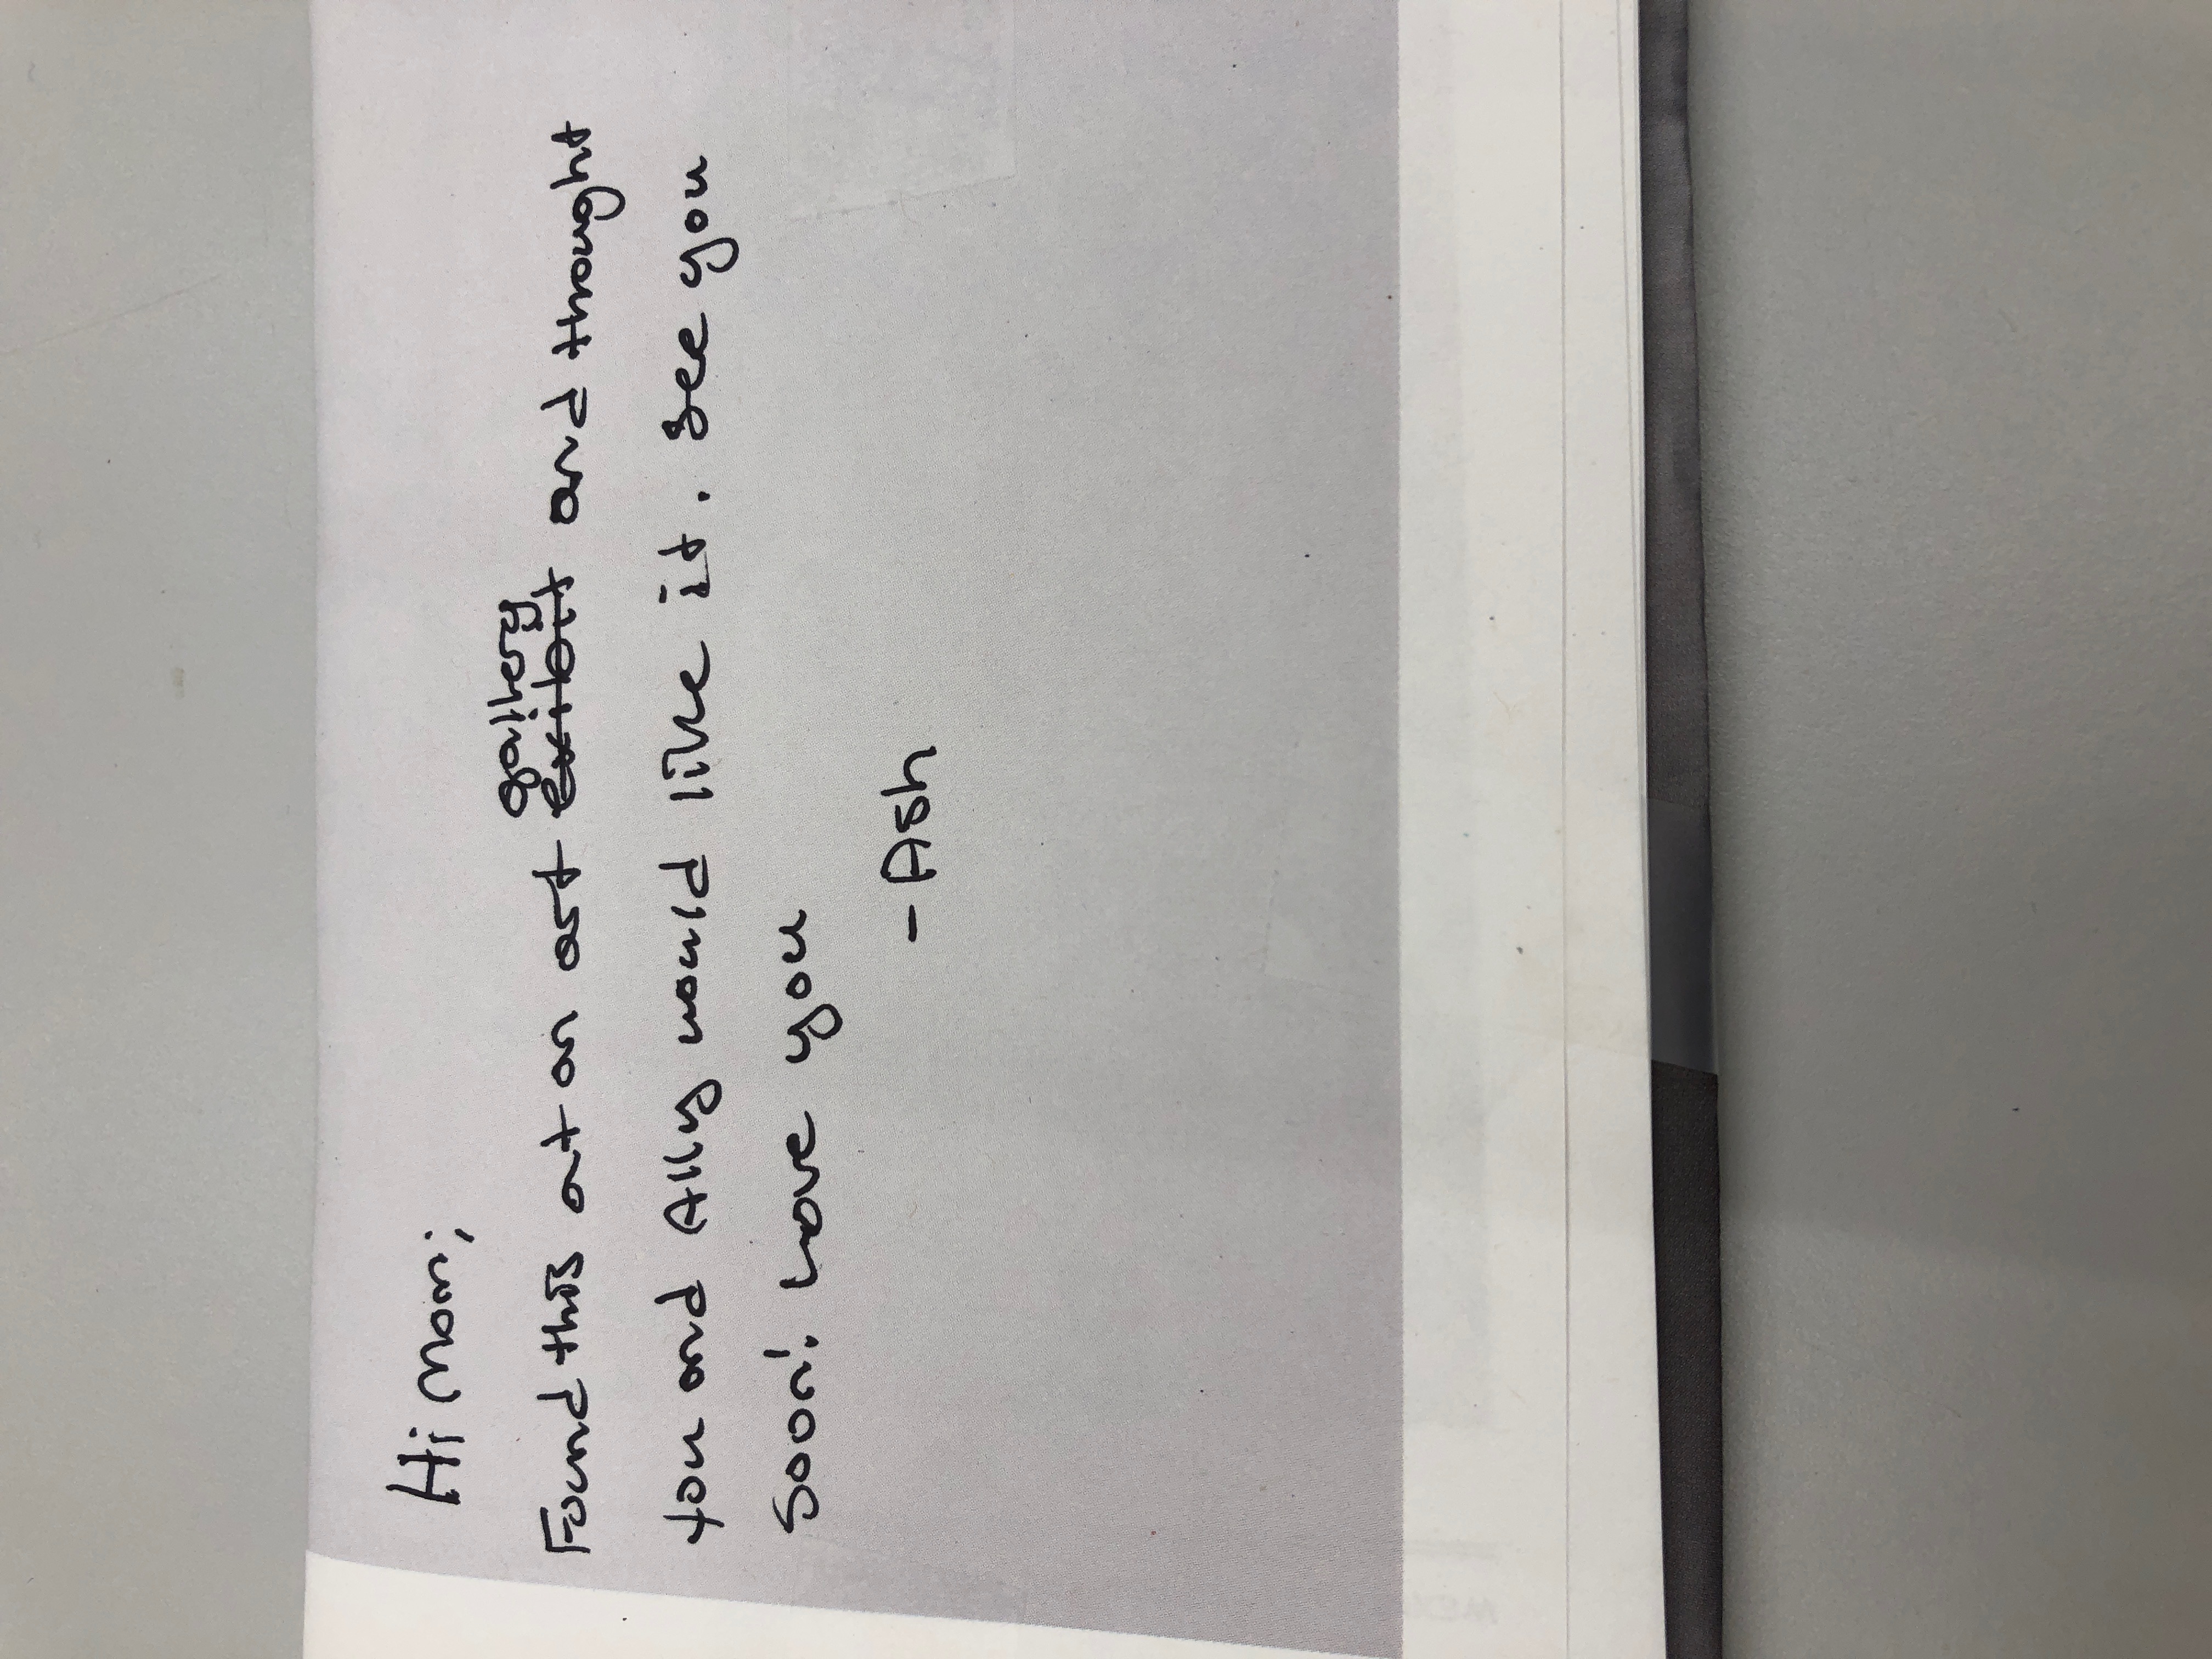 Hi mom,
gallery
Found this at an art exibit and thought
you and Ally would like it. See you
soon! Love you
- Ash